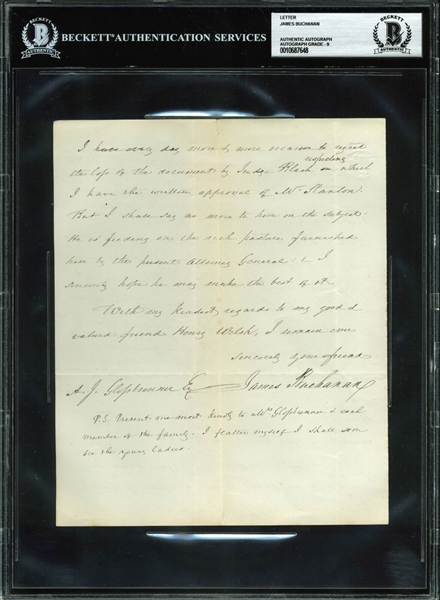 BECKETT
AUTHENTIC
BECKETT AUTHENTICATION SERVICES
LETTER
JAMES BUCHANAN
AUTHENTIC AUTOGRAPH
AUTOGRAPH GRADE - 9
0010687648
BECKETT
AUTHENTIC
I have every day more & more reason to regret
respecting
the loss of the document by Judge Black on which
I have the written approval of Mr Stanton.
But I shall say no more to him on the subject.
He is feeding on the rich pasture furnished
him by the present Attorney General: & I
sincerely hope he may make the best of it.
With my kindest regards to my good &
valued friend Henry Welsh, I remain ever
Sincerely your friend
A. J. Glossbrenner Esq James Buchanan
P.S. Present me most kindly to Mrs Glossbrenner & each
member of the family. I flatter myself I shall soon
see the young ladies.